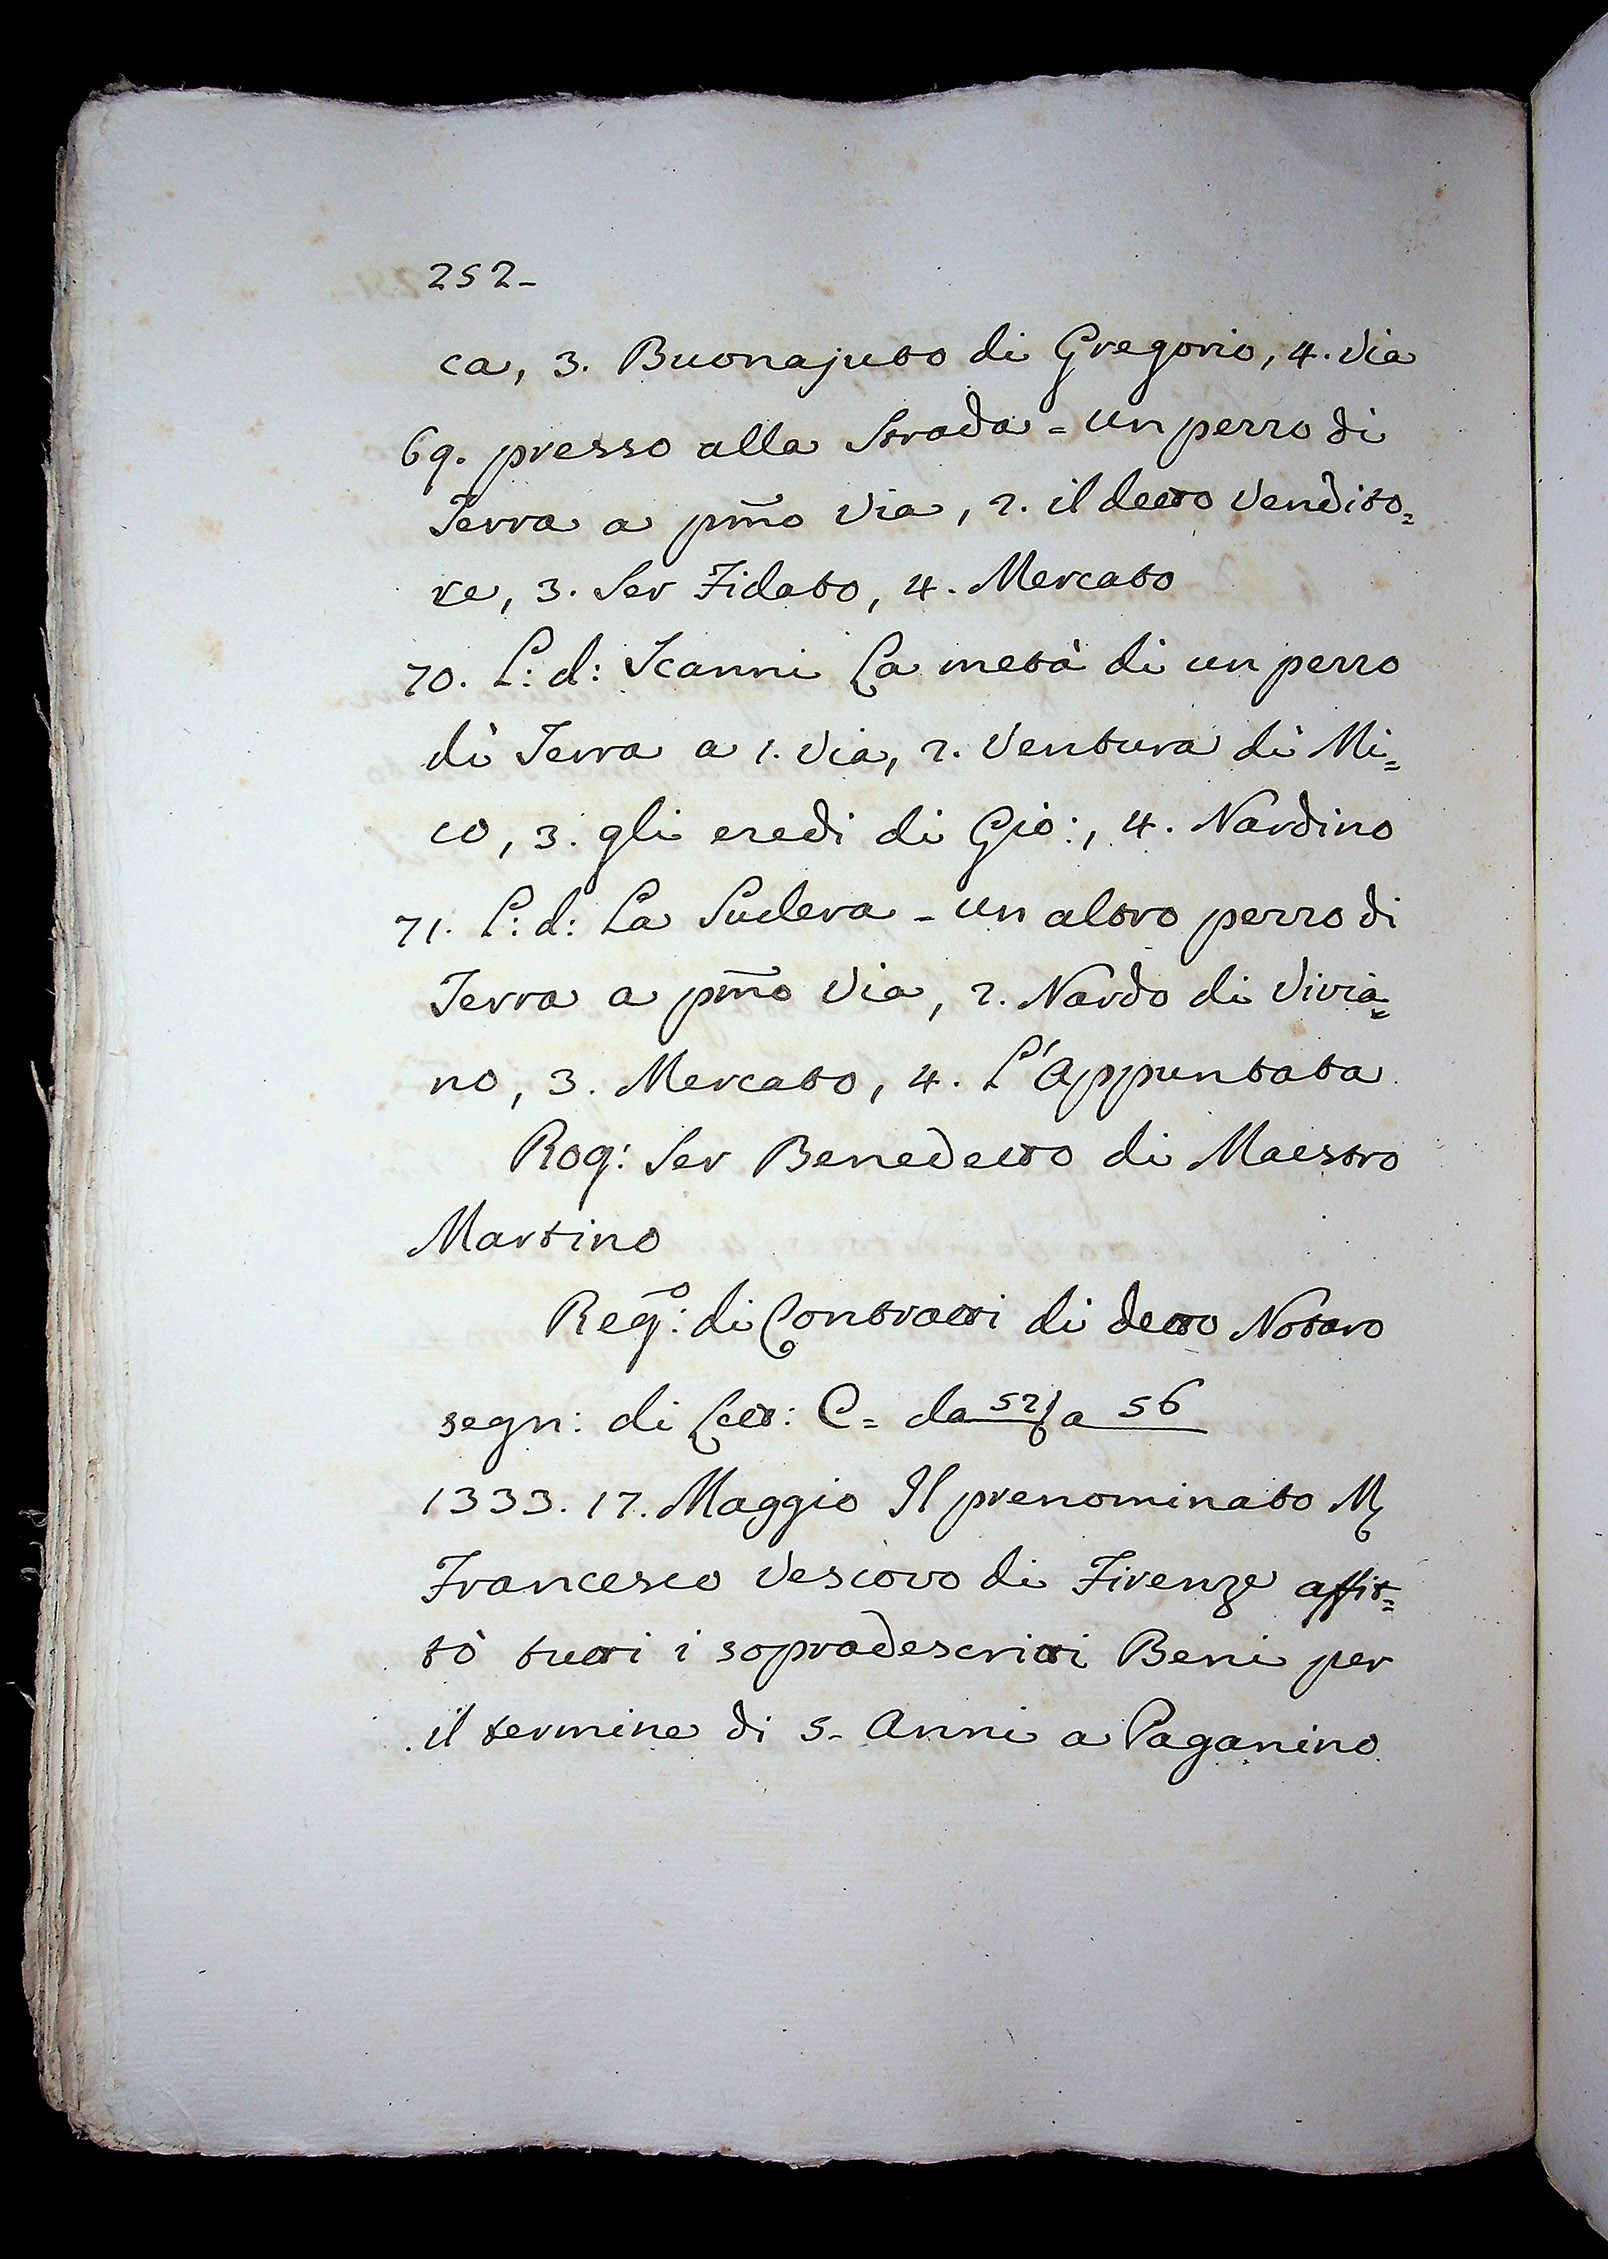 252-
ca, 3. Buonajuto di Gregorio, 4. via
69. presso alla Strada = un pezzo di
Terra a pm̃o Via, 2. il detto Vendito=
re, 3. Ser Fidato, 4. Mercato
70. L: d: Scanni La metà di un pezzo
di Terra a 1. Via, 2. Ventura di Mi=
co, 3. gli eredi di Gio:, 4. Nardino
71. L: d: La Sudera - un altro pezzo di
Terra a pm̃o Via, 2. Nardo di Vivia=
no, 3. Mercato, 4. L'Appuntata
Rog: Ser Benedetto di Maestro
Martino
Reg.o: di Contratti di detto Notaro
segn: di Lett: C= da 52 a 56
1333. 17. Maggio Il prenominato M
Francesco Vescovo di Firenze affit=
tò tutti i sopradescritti Beni per
il termine di 5- Anni a Paganino